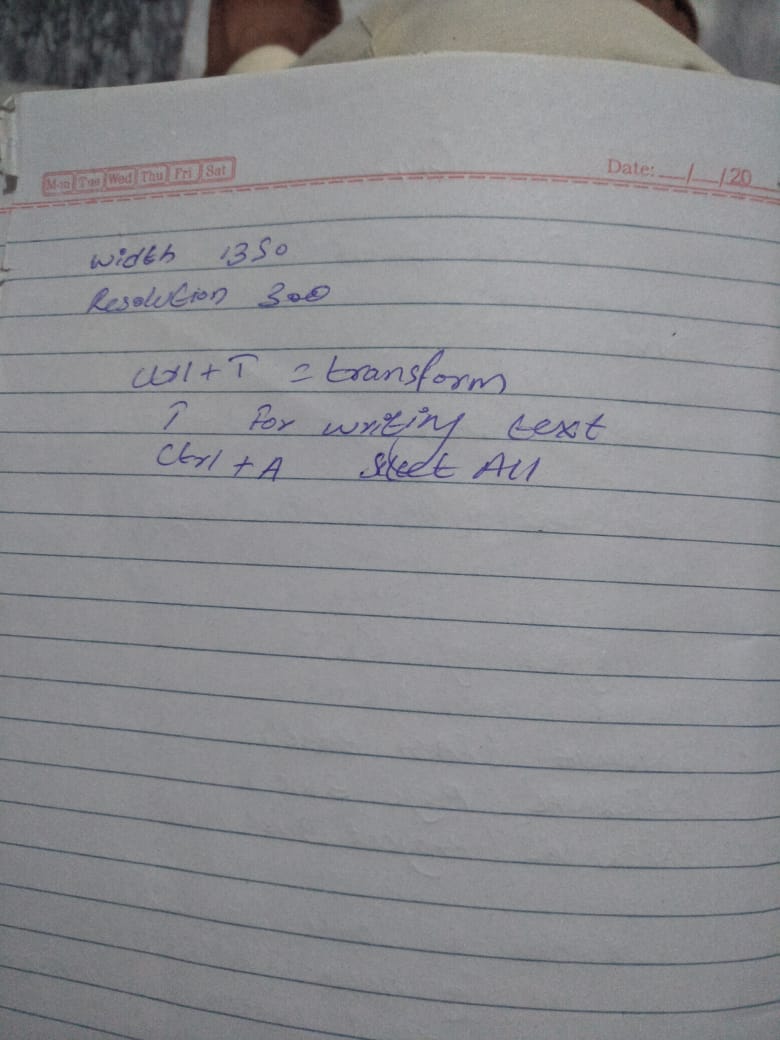 Mon Tue Wed Thu Fri Sat
Date: __/__/20
Width 1350
Resolution 300
Ctrl + T = transform
T For writing text
Ctrl + A Select All